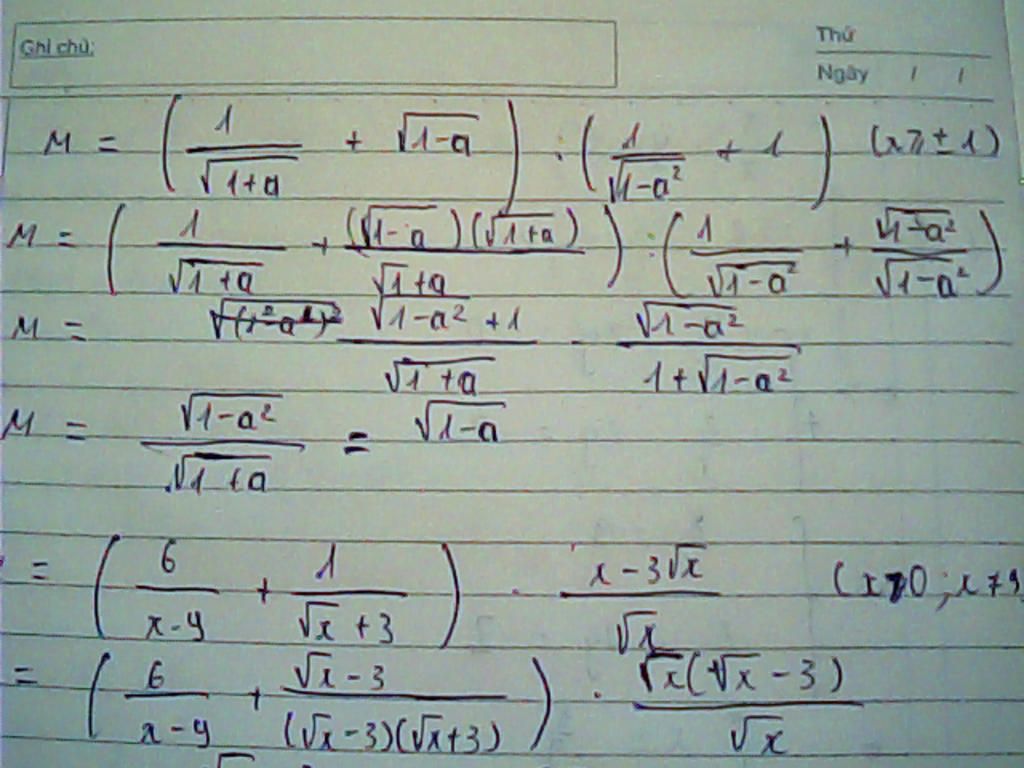 Ghi chú:
Thứ
Ngày / /
M = ( 1/√(1+a) + √(1-a) ) : ( 1/√(1-a²) + 1 ) (x ≥ ± 1)
M = ( 1/√(1+a) + (√(1-a))(√(1+a))/√(1+a) ) : ( 1/√(1-a²) + √(1-a²)/√(1-a²) )
M = (√(1-a²) + 1)/√(1+a) · √(1-a²)/(1+√(1-a²))
M = √(1-a²)/√(1+a) = √(1-a)
= ( 6/(x-9) + 1/(√x + 3) ) · (x - 3√x)/√x (x > 0 ; x ≠ 9
= ( 6/(x-9) + (√x - 3)/((√x - 3)(√x + 3)) ) · √x(√x - 3)/√x